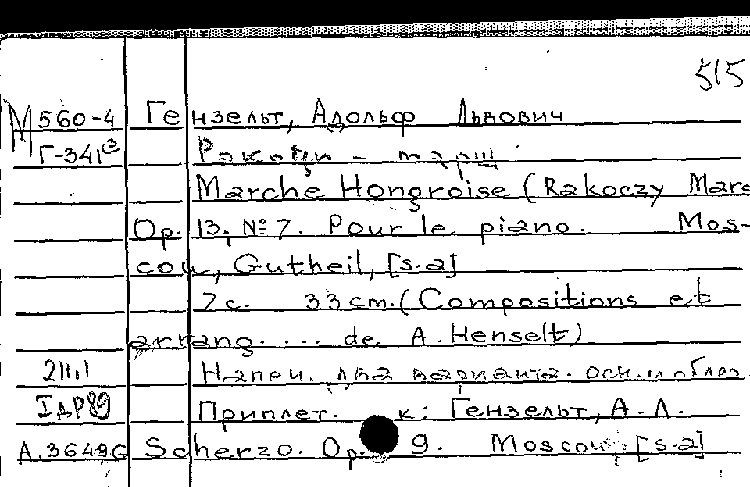 515
М 560-4 Гензельт, Адольф Львович
Г-341 Ракоци - марш
Marche Hongroise (Rakoczy Mars
Op. 13, № 7. Pour le piano. Mos-
cou, Gutheil, [s.a]
7 с. 33 cm. (Compositions et
arrang. ... de A. Henselt)
Напеч. два варианта. осн. и облег
Приплет. к: Гензельт, А. Л.
A.36496 Scherzo. Op. 9. Moscou. [s.a]